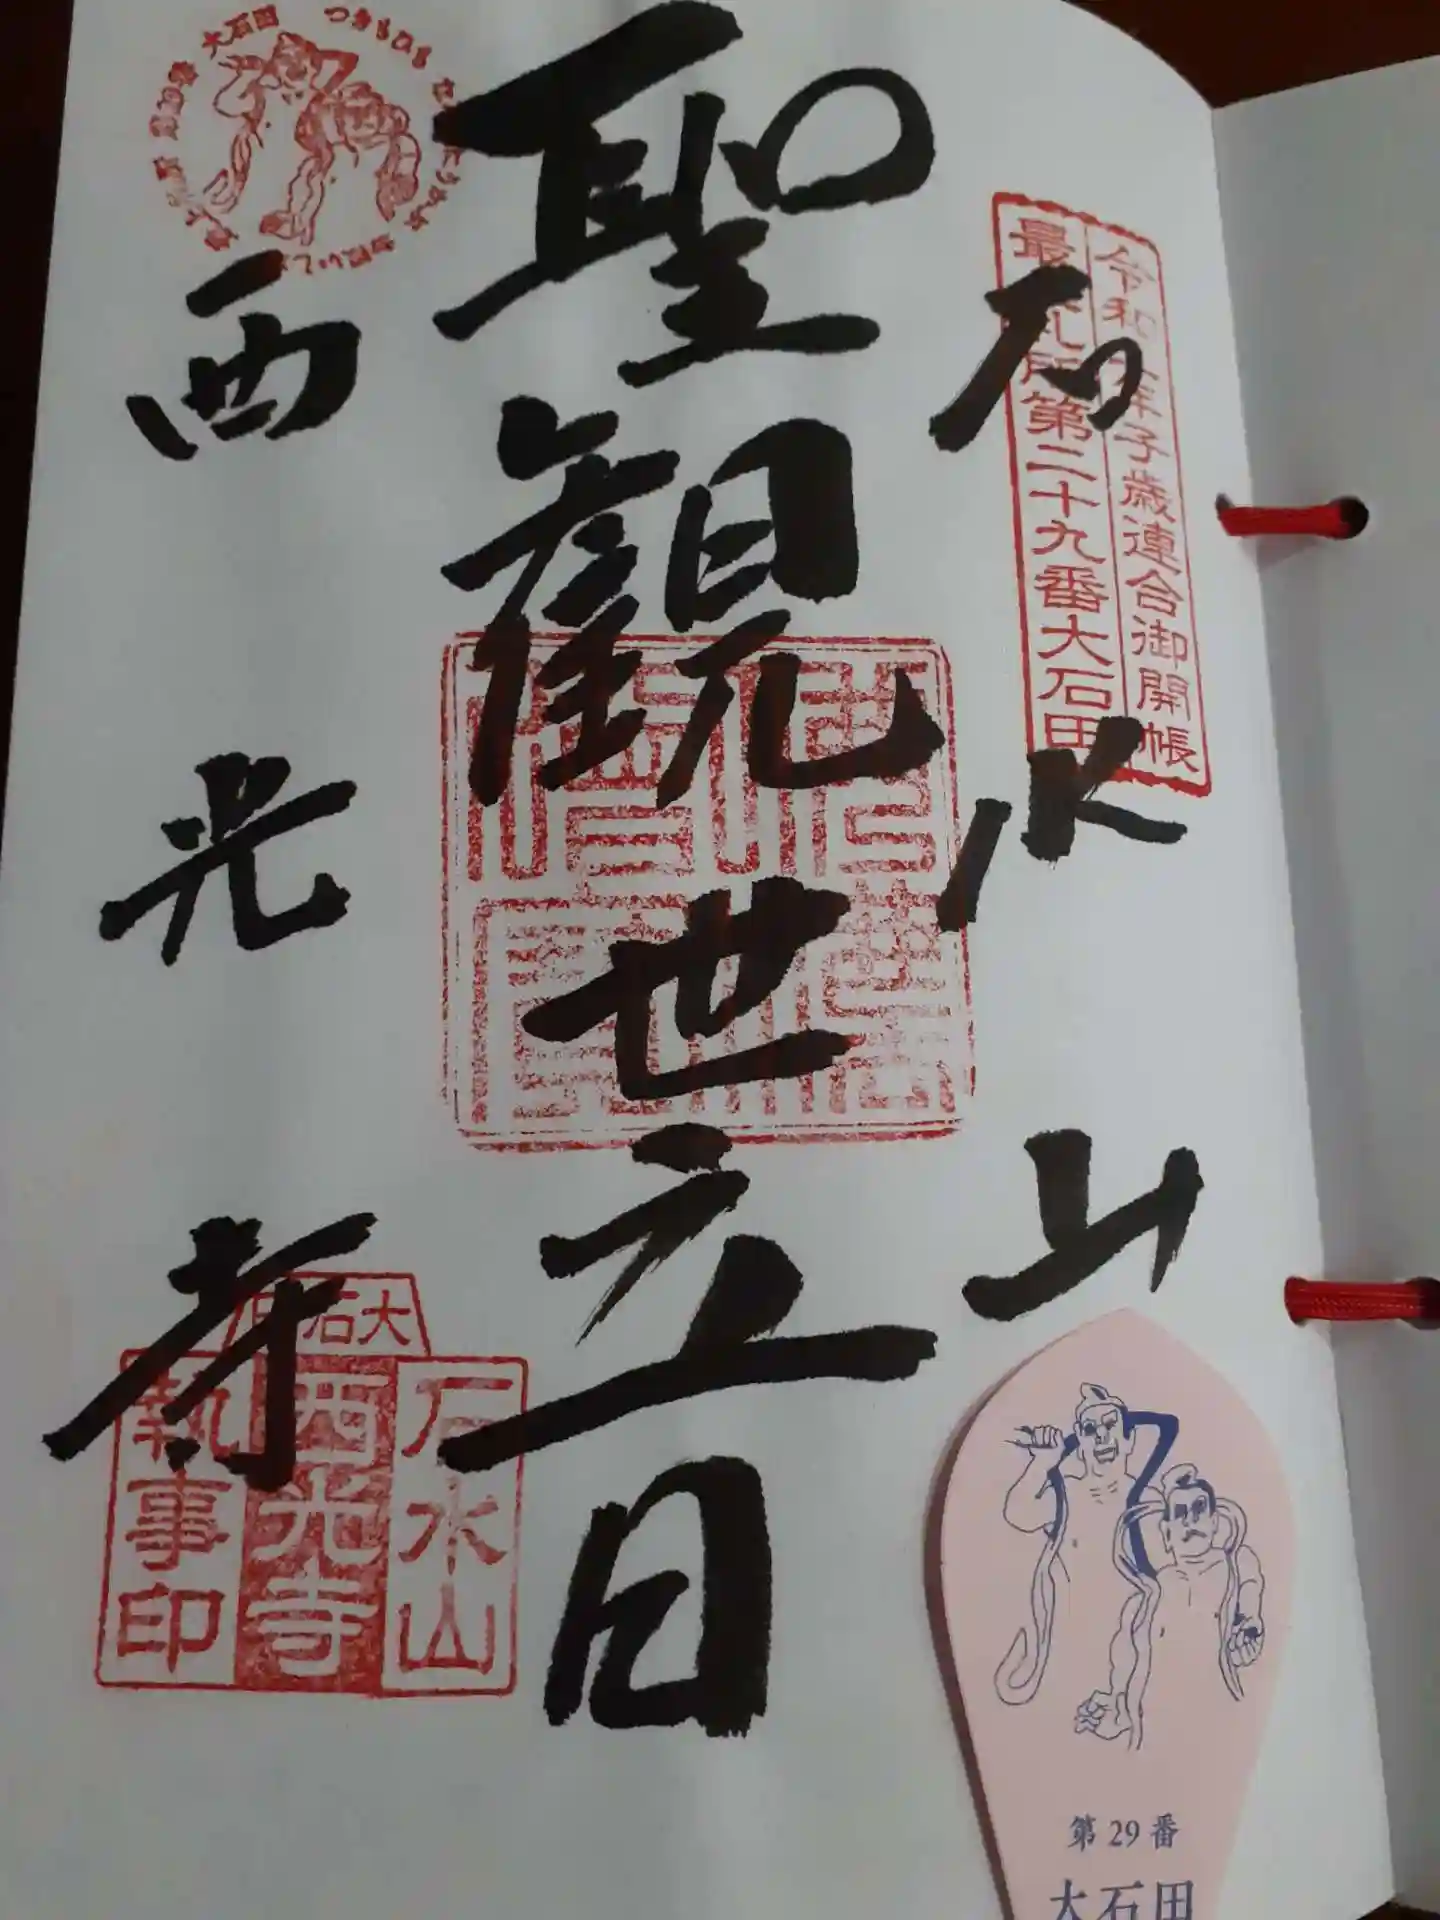 令和二年子歳連合御開帳
最上札所第二十九番大石田
石水山
聖觀世立日
西光寺
大石田
つきもひも
大石田
石水山
西光寺
執事印
第29番
大石田